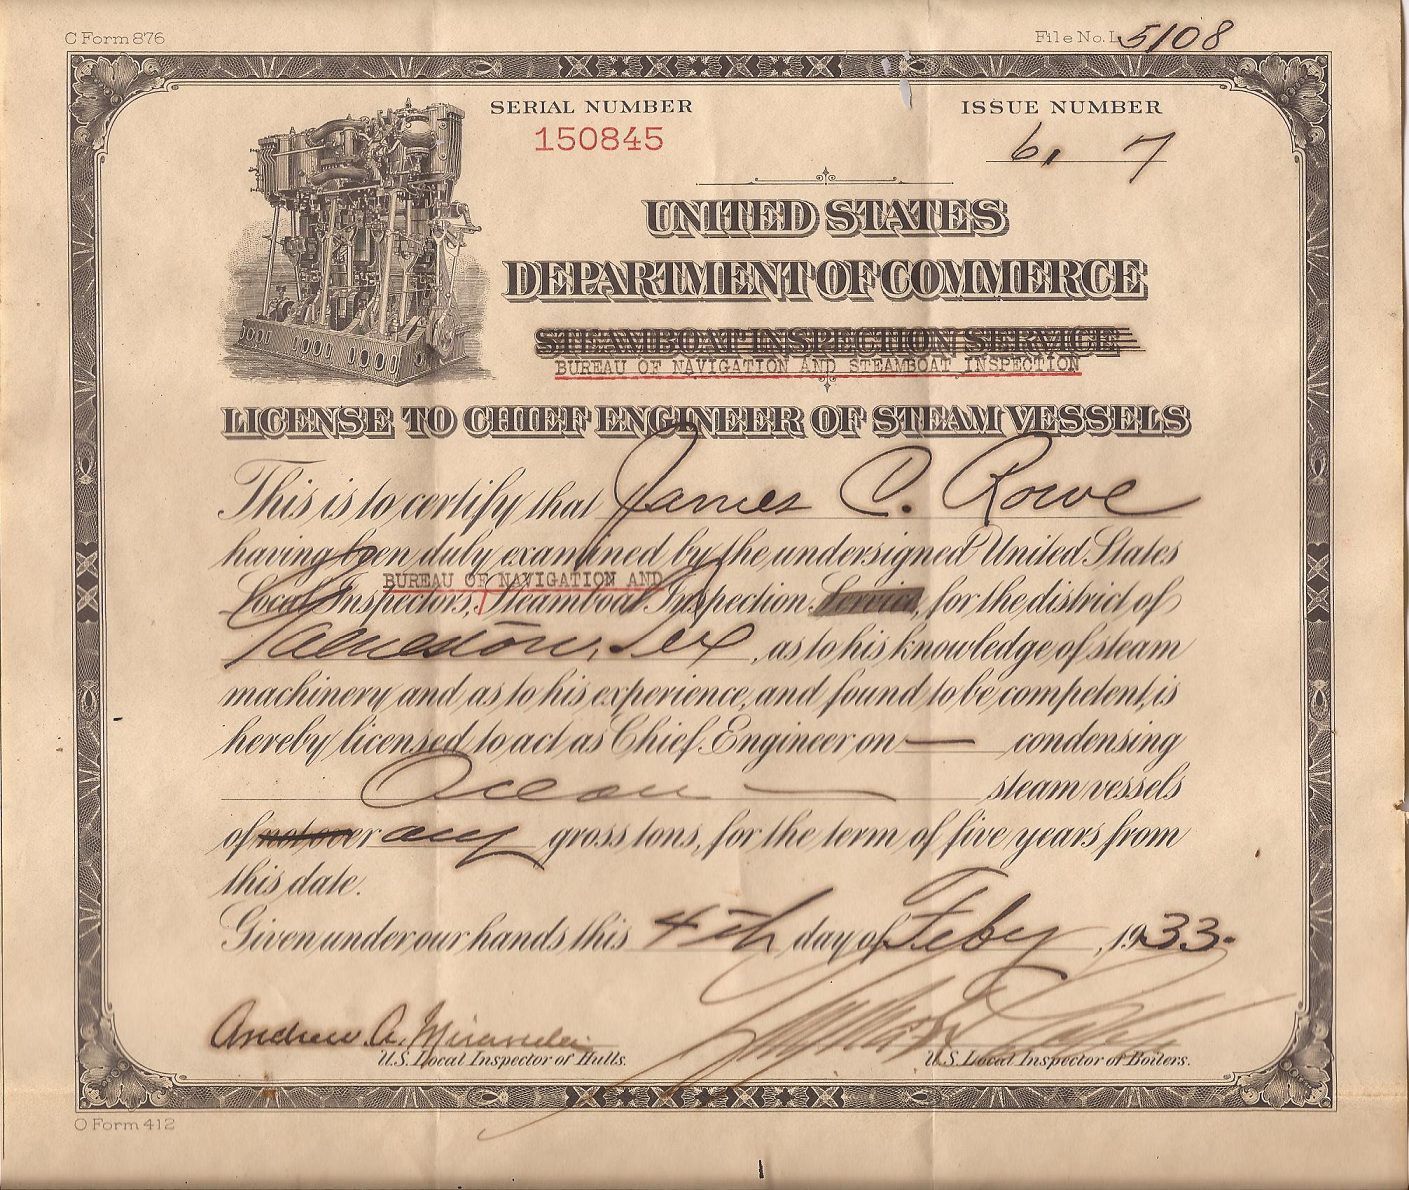 C Form 876
File No. L 5108
SERIAL NUMBER
ISSUE NUMBER
150845
6, 7
UNITED STATES
DEPARTMENT OF COMMERCE
STEAMBOAT INSPECTION SERVICE
BUREAU OF NAVIGATION AND STEAMBOAT INSPECTION
LICENSE TO CHIEF ENGINEER OF STEAM VESSELS
This is to certify that James C. Rowe
having been duly examined by the undersigned United States
BUREAU OF NAVIGATION AND
Local Inspectors, Steamboat Inspection Service, for the district of
Galveston, Tex, as to his knowledge of steam
machinery and as to his experience, and found to be competent, is
hereby licensed to act as Chief Engineer on — condensing
Ocean — steam vessels
of not over any gross tons, for the term of five years from
this date.
Given under our hands this 4th day of Feby, 1933.
Andrew A.
U.S. Local Inspector of Hulls.
U.S. Local Inspector of Boilers.
O Form 412